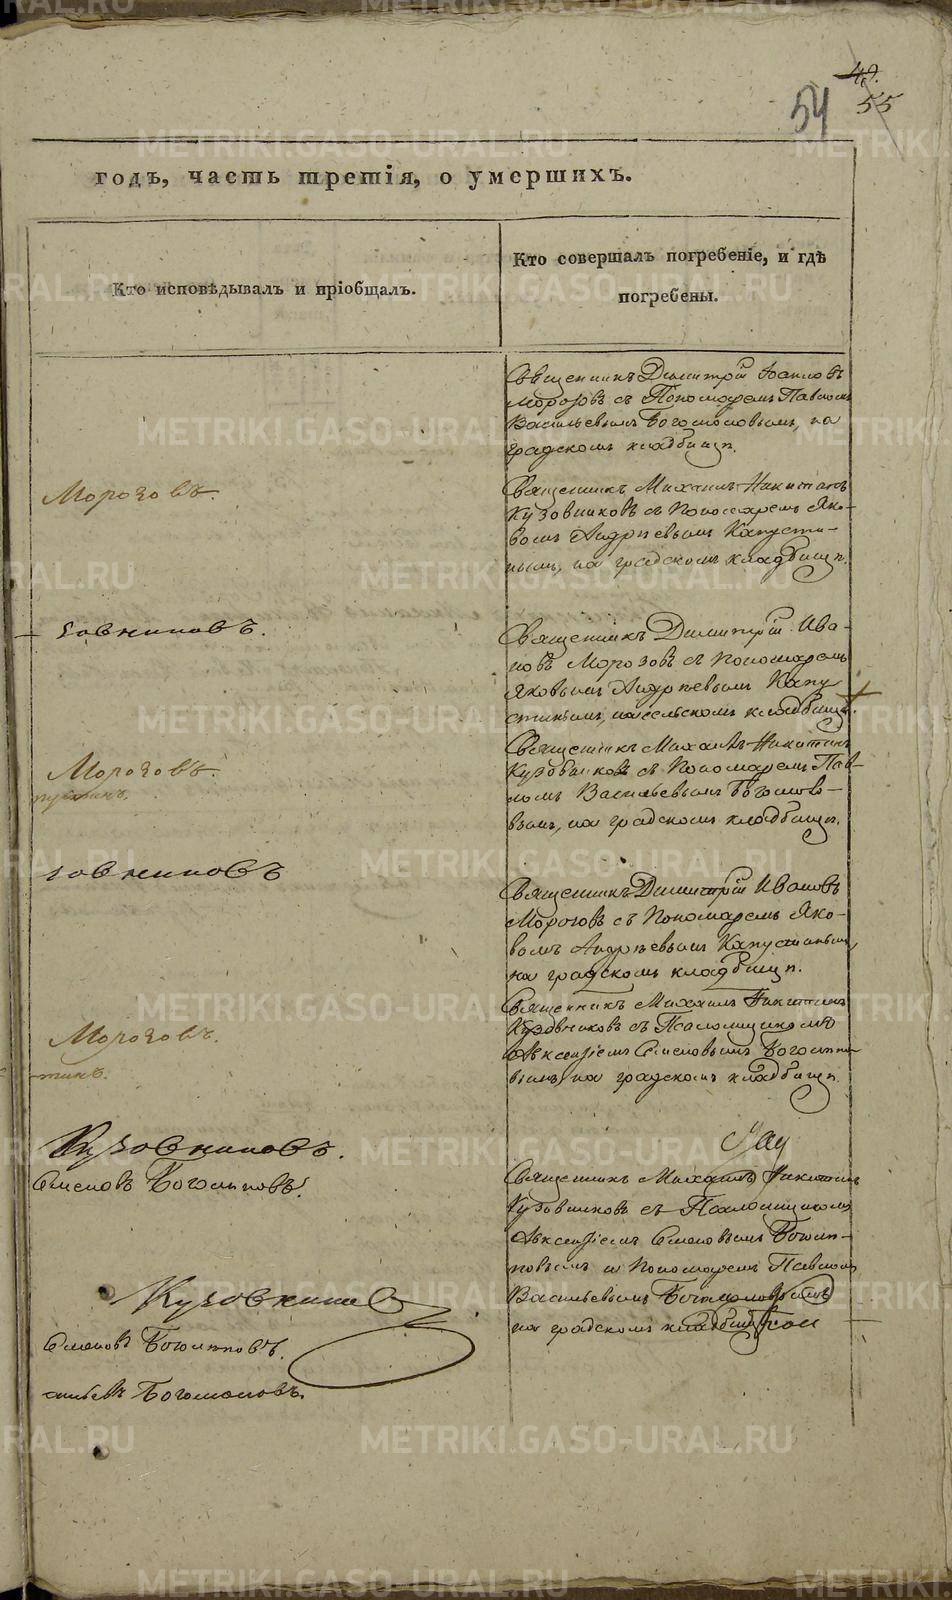 49.
54 55
годъ, часть третія, о умершихъ.
Кто исповѣдывалъ и пріобщалъ.
Кто совершалъ погребеніе, и гдѣ
погребены.
Священникъ Димитрій Іоанновъ
Морозовъ съ Пономаремъ Павломъ
Васильевымъ Богомоловымъ, на
градскомъ кладбищѣ.
Морозовъ.
Священникъ Михаилъ Никитинъ
Кузовниковъ съ Пономаремъ Яко-
вомъ Андрѣевымъ Капусти-
нымъ, на градскомъ кладбищѣ.
зовниковъ.
Священникъ Димитрій Ива-
новъ Морозовъ съ Пономаремъ
Яковымъ Андрѣевымъ Капу
стинымъ, на сельскомъ кладбищѣ.
Морозовъ.
пустинъ.
Священникъ Михаилъ Никитинъ
Кузовниковъ съ Пономаремъ Пав-
ломъ Васильевымъ Богомоло-
вымъ, на градскомъ кладбищѣ.
зовниковъ
Священникъ Димитрій Ивановъ
Морозовъ съ Пономаремъ Яко-
вомъ Андрѣевымъ Капустинымъ,
на градскомъ кладбищѣ.
Морозовъ.
тинъ.
Священникъ Михаилъ Никитинъ
Кузовниковъ съ Псаломщикомъ
Авксентіемъ Семеновымъ Боголѣпо-
вымъ на градскомъ кладбищѣ.
Кузовниковъ.
Семеновъ Боголѣповъ.
Священникъ Михаилъ Никитинъ
Кузовниковъ съ Псаломщикомъ
Авксентіемъ Семеновымъ Боголѣ-
повымъ и Пономаремъ Павломъ
Васильевымъ Богомоловымъ
на градскомъ кладбищѣ
Кузовников
Семеновъ Боголѣповъ.
сильевъ Богомоловъ.
METRIKI.GASO-URAL.RU